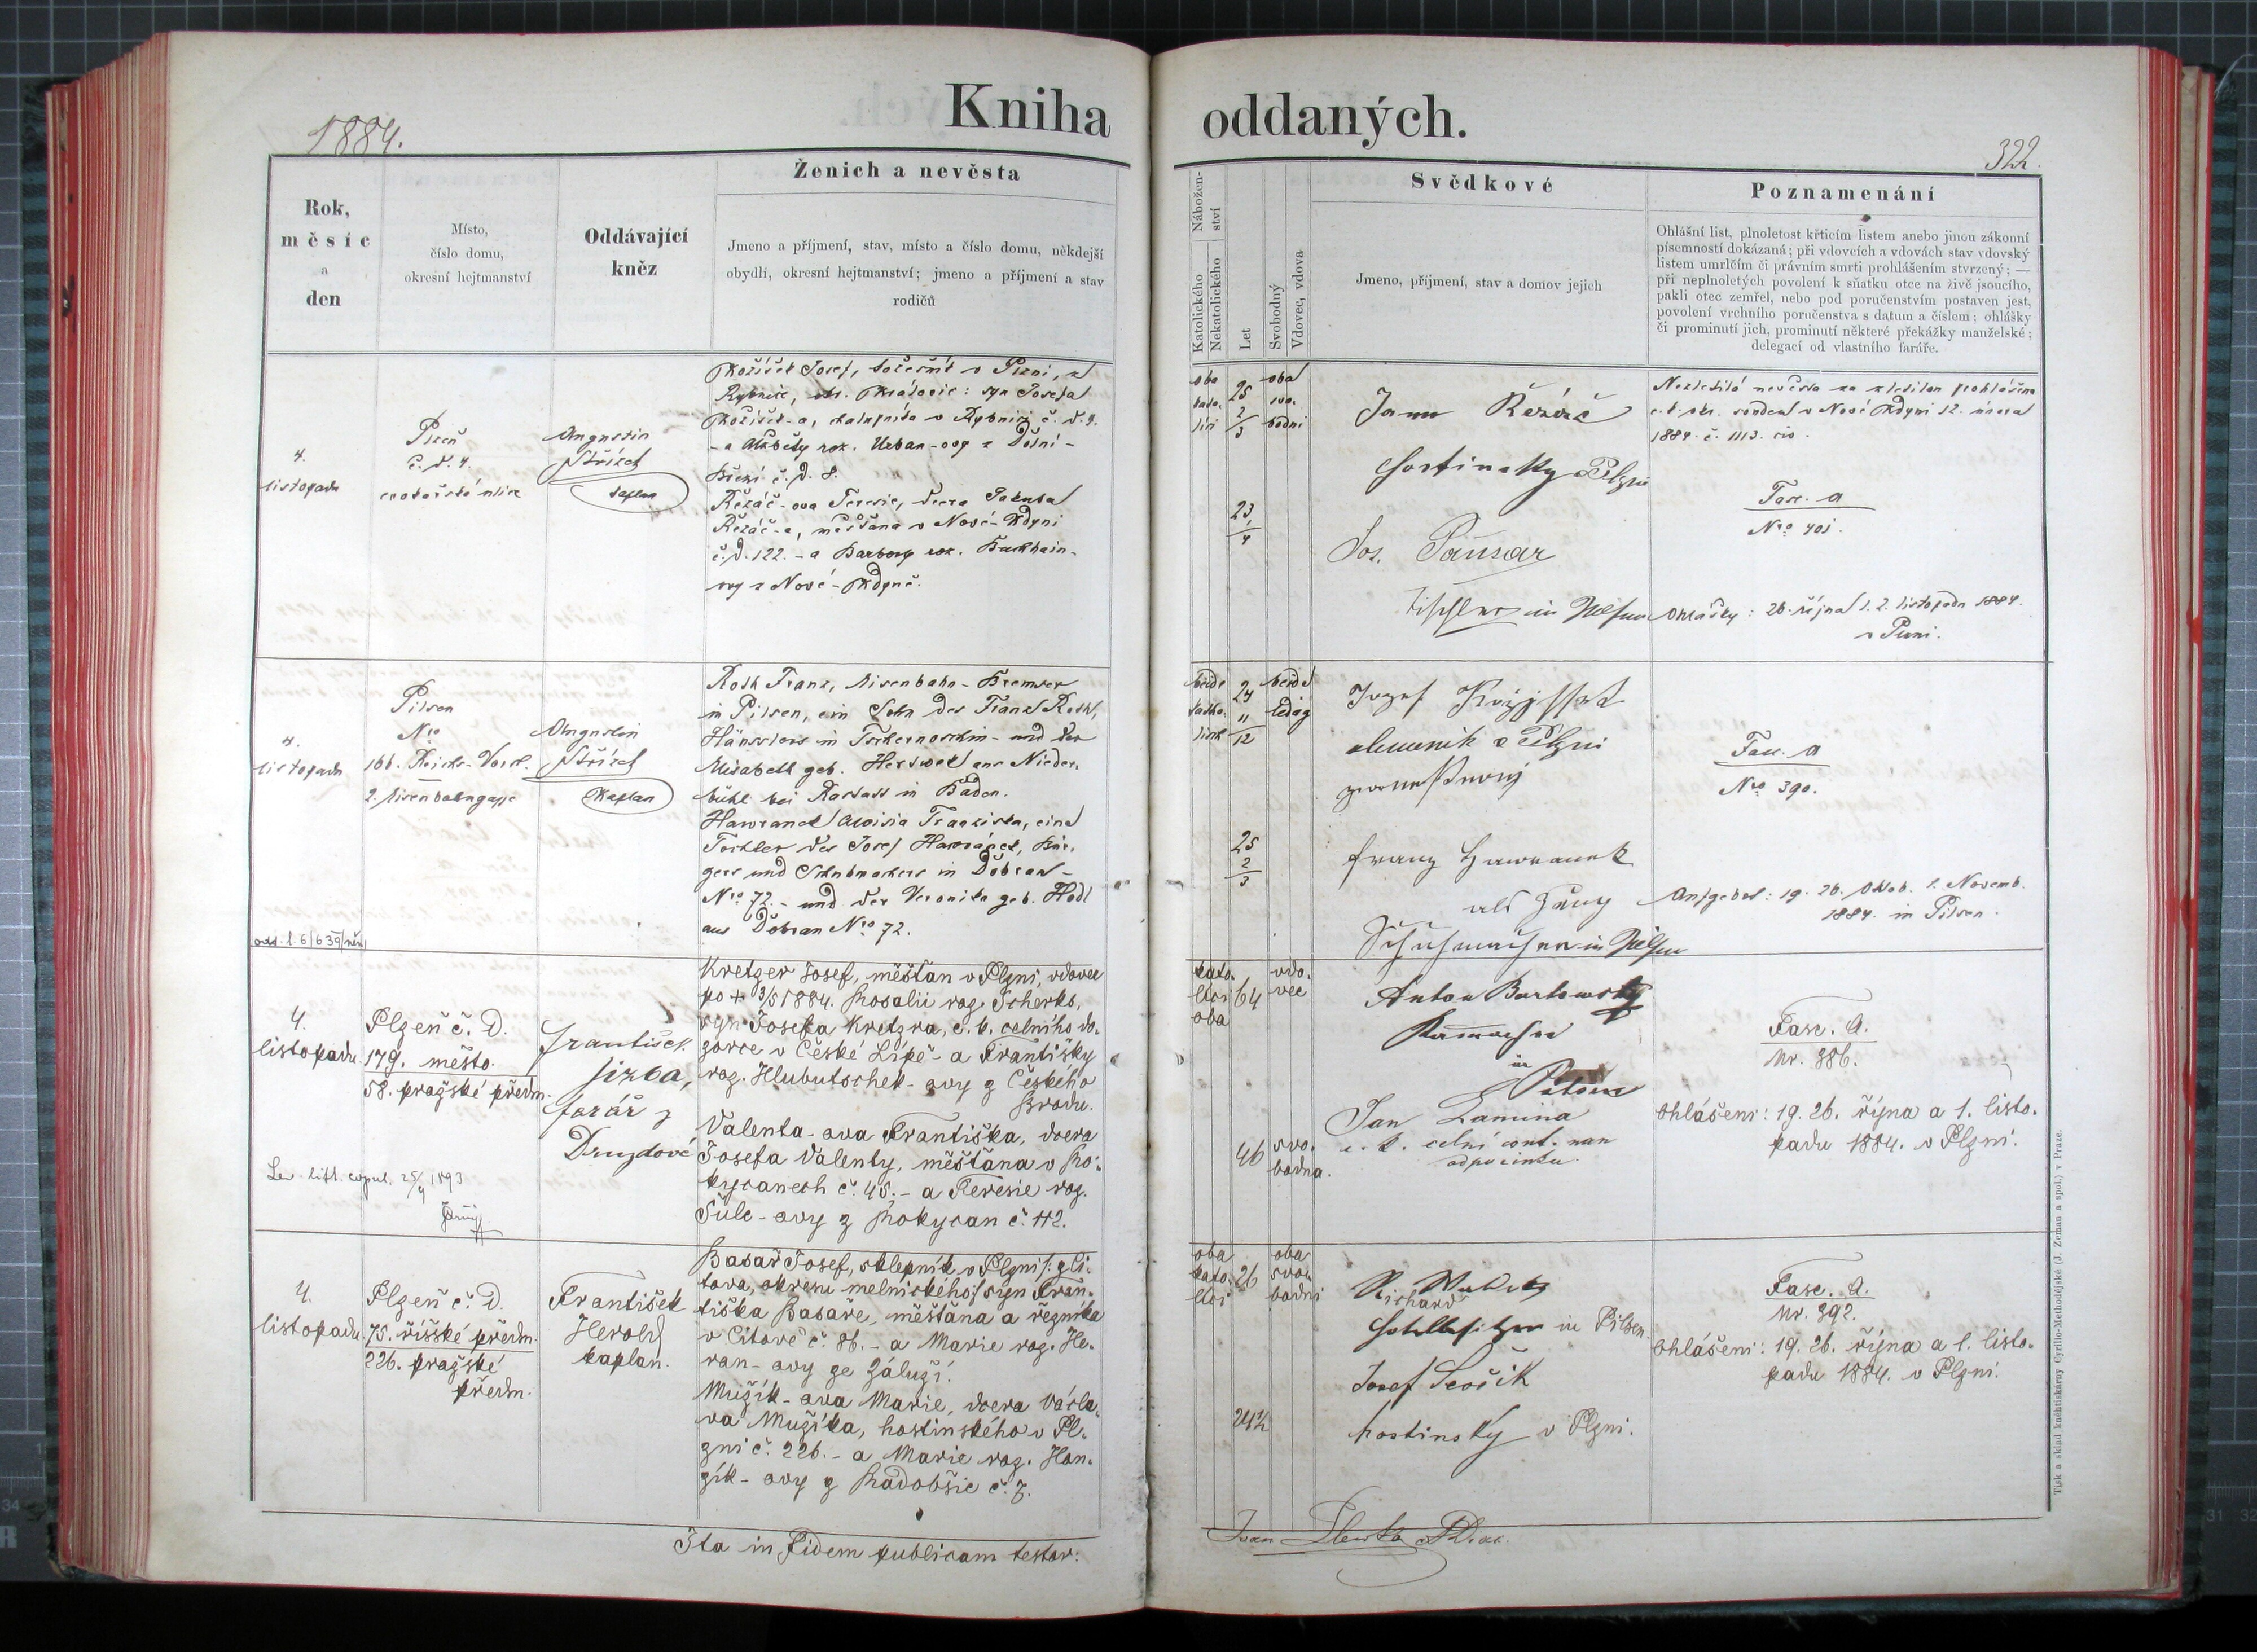 1884.
Kniha
oddaných.
322.
Rok,
měsíc
a
den
Místo,
číslo domu,
okresní hejtmanství
Oddávající
kněz
Ženich a nevěsta
Jmeno a příjmení, stav, místo a číslo domu, někdejší
obydlí, okresní hejtmanství; jmeno a příjmení a stav
rodičů
Nábožen-
ství
Katolického
Nekatolického
Let
Svobodný
Vdovec, vdova
Svědkové
Jmeno, příjmení, stav a domov jejich
Poznamenání
Ohlášní list, plnoletost křticím listem anebo jinou zákonní
písemností dokázaná; při vdovcích a vdovách stav vdovský
listem umrlčím či právním smrti prohlášením stvrzený; —
při neplnoletých povolení k sňatku otce na živě jsoucího,
pakli otec zemřel, nebo pod poručenstvím postaven jest,
povolení vrchního poručenstva s datum a číslem; ohlášky
či prominutí jich, prominutí některé překážky manželské;
delegací od vlastního faráře.
4.
listopadu
Plzeň
č. d. 4.
Augustin
Střízek
kaplan
Josef, v Plzni, z
Rybnice, okr. Kralovic: syn Josefa
v Rybnici č. d. 9.
- a Alžběty roz. Urban-ovy z Dolní-
č. d. 8.
Řezáč-ova Teresie, dcera Jakuba
Řezáč-a, měšťana v Nové-Kdyni
č. d. 122. - a Barbory roz.
ovy z Nové-Kdyně.
oba
kato.
ličí
25
2
3
oba
svo.
bodni
23
1
4
Řezáč
hostinsky Plzni
Jos. Pausar
Tischler in Pilsen
Nezletilá nevěsta za zletilou prohlášena
c. k. okr. soudem v Nové Kdyni 12. února
1884. č. 1113. civ.
Fasc. a
Nro 401.
Ohlášky: 26. října 1. 2. listopadu 1884.
v Plzni.
4.
listopadu
Pilsen
Nro
166. Reichs-Vorst.
2. Eisenbahngasse
Augustin
Střízek
Kaplan
Roth Franz, Eisenbahn-Bremser
in Pilsen, ein Sohn des Franz Roth,
Häuslers in Tschernoschin - und der
Elisabeth geb. aus Nieder-
bühl bei Rastatt in Baden.
Hawranek Aloisia Franziska, eine
Tochter des Josef Hawránek, Bür-
gers und Schuhmachers in Dobřan-
Nro 72. - und der Veronika geb. Hodl
aus Dobřan Nro 72.
beide
katho.
lisch
24
11
12
beide
ledig
25
2
3
Plzni
Franz Hawranek
als Zeug
Schuhmacher in Pilsen
Fasc. a
Nro 390.
Aufgebot: 19. 26. Oktob. 1. Novemb.
1884. in Pilsen.
odd. l. 6/639/něm
4.
listopadu.
Plzeň č. D.
179. město.
58. pražské předm.
František
Jizba,
farář z
Druzdové
Kretzer Josef, měšťan v Plzni, vdovec
po + 3/5 1884. Rosalii roz. Scherks,
syn Josefa Kretzra, c. k. celního do-
zorce v České Lípě - a Františky
roz. Hlubutschek-ovy z Českého
Brodu.
Valenta-ova Františka, dcera
Josefa Valenty, měšťana v Ro-
kycanech č. 45. - a Teresie roz.
Šulc-ovy z Rokycan č. 112.
kato.
ličí
oba
64
vdo.
vec
46
svo.
bodna.
Anton Bartowsky
in
Pilsen
Jan Lamina
c. k. celní
odpočinku.
Fasc. A.
Nr. 386.
Ohlášeni: 19. 26. října a 1. listo-
padu 1884. v Plzni.
copul. 25/4 1893
4.
listopadu.
Plzeň č. D.
75. říšské předm.
226. pražské
předm.
František
Herold
kaplan.
Basař Josef, sklepník v Plzni /: z Ci-
tova, okresu melnického :/ syn Fran-
tiška Basaře, měšťana a řezníka
v Citově č. 86. - a Marie roz. He-
ran-ovy ze Záluží.
Mužík-ova Marie, dcera Václa-
va Mužíka, hostinského v Pl-
zni č. 226. - a Marie roz. Hon-
zík-ovy z Radobšic č. 7.
oba
kato.
ličí
26
oba
svo.
bodni
24½
Richard
Hotelbesitzer in Pilsen.
Josef Ševčík
hostinsky v Plzni.
Fasc. A.
Nr. 392.
Ohlášeni: 19. 26. října a 1. listo-
padu 1884. v Plzni.
Ita in Fidem publicam testor:
Tisk a sklad kněhtiskárny Cyrillo-Methodějské (J. Zeman a spol.) v Praze.